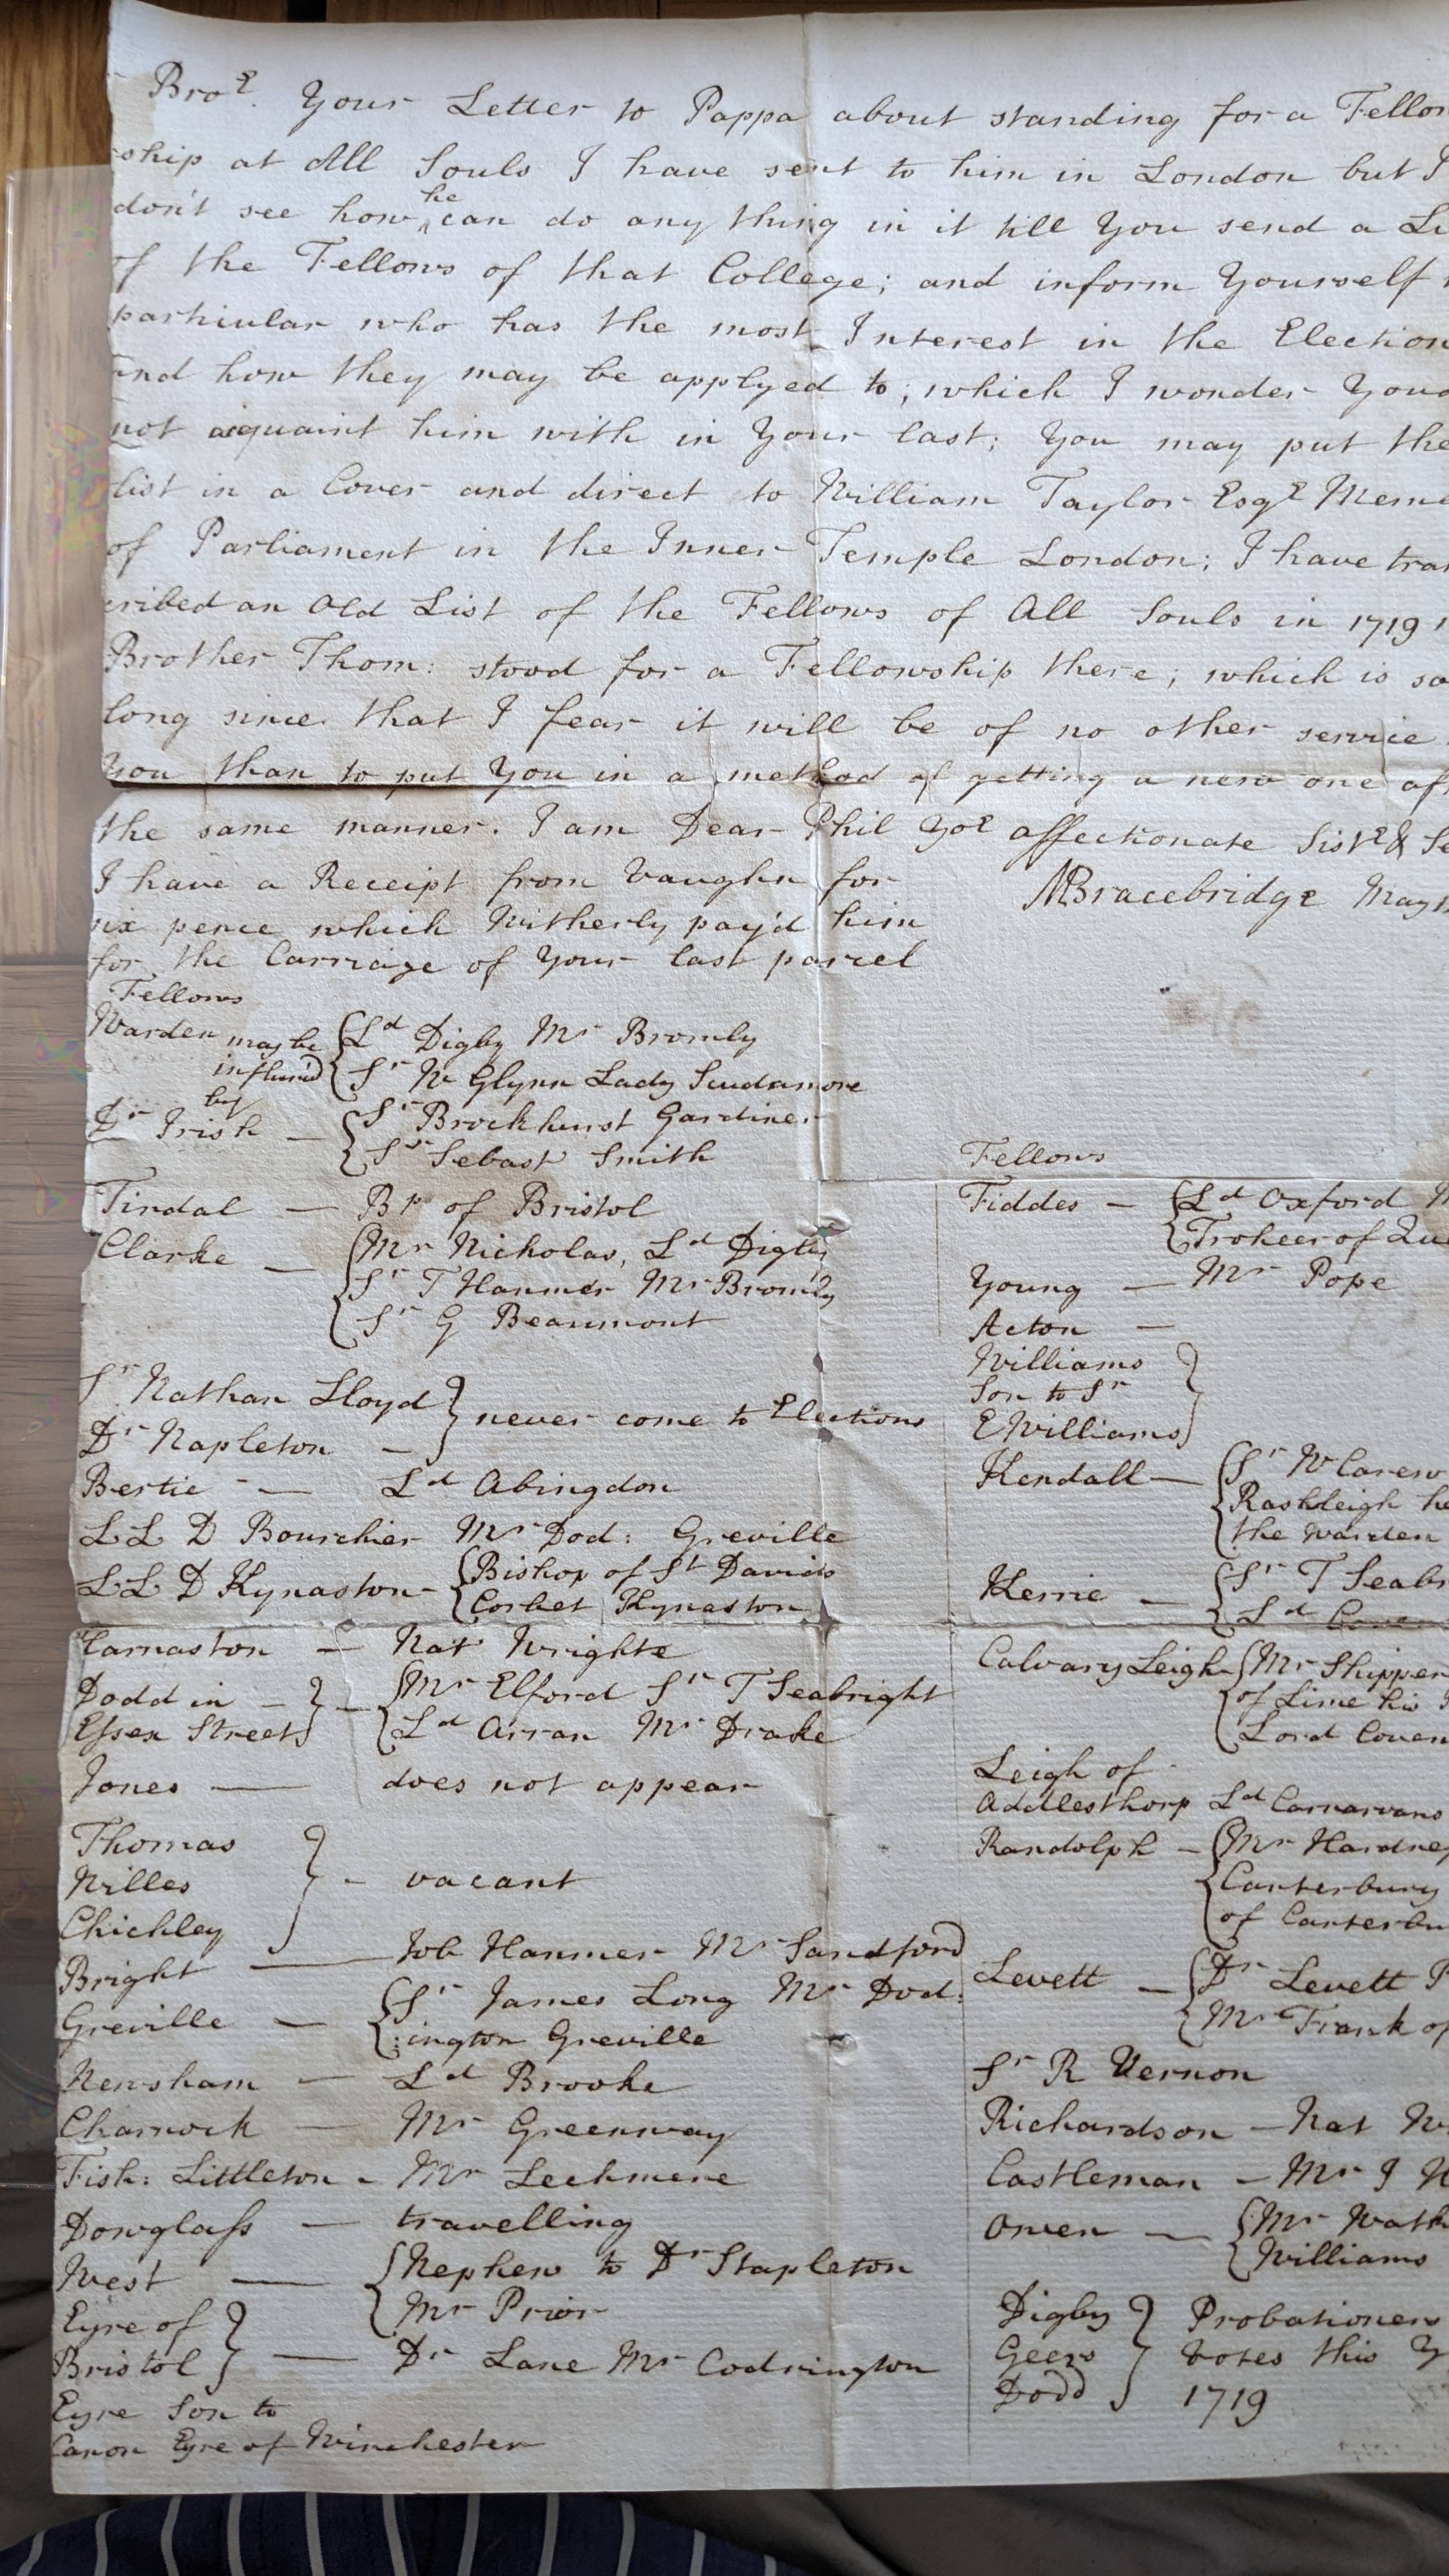 Bror. Your Letter to Pappa about standing for a Fellow
-ship at All Souls I have sent to him in London but I
don't see how he can do any thing in it till You send a Li
of the Fellows of that College; and inform Yourself
particular who has the most Interest in the Election
and how they may be applyed to; which I wonder You
not acquaint him with in Your last; You may put the
list in a Cover and direct to William Taylor Esqr Mem
of Parliament in the Inner Temple London; I have tran
cribed an Old List of the Fellows of All Souls in 1719
Brother Thom: stood for a Fellowship there; which is so
long since that I fear it will be of no other service
You than to put You in a method of getting a new one aft
the same manner. I am Dear Phil Yor affectionate Sistr & Se
I have a Receipt from Vaughn for
MBracebridge May
six pence which Witherly pay'd him
for the Carriage of Your last parcel
Fellows
Warden may be influen'd by { Ld Digby Mr Bromly
Sr W Glynn Lady Scudamore
Dr Irish — { Sr Brockhurst Gardiner
Sr Sebast Smith
Tindal — Bp of Bristol
Clarke — { Mr Nicholas, Ld Digby
Sr T Hanmer Mr Bromly
Sr G Beaumont
Sr Nathan Lloyd
Dr Napleton — } never come to Elections
Bertie — Ld Abingdon
LL D Bourchier Mr Dod: Greville
LL D Kynaston - { Bishop of St Davids
Corbet Kynaston
Carnaston — Nat Wrighte
Dodd in — } — { Mr Elford Sr T Seabright
Essex Street } { Ld Arran Mr Drake
Jones — does not appear
Thomas
Willes } - vacant
Chichley
Bright — Job Hanmer Mr Sandford
Greville — { Sr James Long Mr Dod:
:ington Greville
Wensham — Ld Brooke
Charnock — Mr Greenway
Fish: Littleton - Mr Lechmere
Dowglass — travelling
West — { Nephew to Dr Stapleton
Mr Prior
Eyre of
Bristol } — Dr Lane Mr Codrington
Eyre Son to
Canon Eyre of Winchester
Fellows
Fiddes — { Ld Oxford
of Qu
Young — Mr Pope
Acton —
Williams
Son to Sr
E Williams }
Kendall — { Sr W Carew
Rashleigh he
the Warden
Kerrie — { Sr T Seabr
Ld Coven
Calvary Leigh - { Mr Shippen
of Lime his
Lord Coven
Leigh of
Addlesthorp Ld Carnarvans
Randolph — { Mr Hardre
Canterbury
of Canterbu
Levett — { Dr Levett P
Mr Frank of
Sr R Vernon
Richardson — Nat W
Castleman — Mr J
Owen — { Mr Wath
Williams
Digby } Probationers
Geers } votes this Y
Dodd } 1719